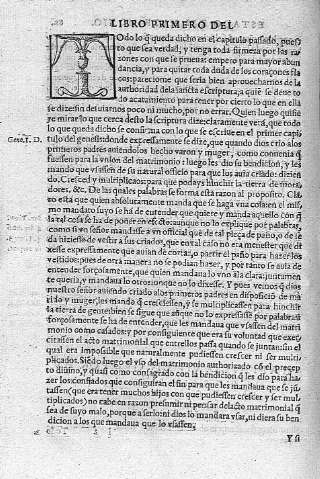 LIBRO PRIMERO DEL
Todo lo q̃ queda dicho en el capitulo passado, pues
to que sea verdad, y tenga toda firmeza por las ra
zones con que se prueua: empero para mayor abun
dancia, y para quitar toda duda de los coraçones fla
cos: pareciome que seria bien aprouecharnos de la
authoridad dela sancta escriptura, a quiẽ se deue to
do acatamiento para tener por cierto lo que en ella
se dize sin desuiarnos poco ni mucho, por no errar. Quien luego quisie
re mirar lo que cerca desto la scriptura dize claramente vera, que todo
lo que queda dicho se confirma con lo que se escriue en el primer capi
Gene. I. D.
tulo del genesi donde expressamente se dize, que quando dios crio a los
primeros padres auiendolos hecho varon y muger, como conuenia q̃
fuessen para la vnion del matrimonio: luego les dio su bendicion, y les
mando que vsassen de su natural officio para que los auia criado: dizien
do, Cresced y multiplicaos para que podays hinchir la tierra de mora
dores, &c. De las quales palabras se forma esta razon al proposito. Cla
ro esta que quien absolutamente manda que se haga vna cosa en el mis
mo mandato suyo se ha de entender que quiere y manda aquello con q̃
la tal cosa se ha de poner en effecto aunque no lo explique por palabras,
como si vn señor mandasse a vn official que de tal pieça de paño, o de se
da hiziesse de vestir a sus criados, que en tal caso no era menester que di
xesse expressamente que auian de cortar, o partir el paño para hazer los
vestidos: pues de otra manera no se podian hazer, y por tanto se auia de
entender forçosamente, que quien mandaua lo vno a la clara: juntamen
te queria, y mandaua lo otro aunque no lo dixesse. Y pues vemos q̃ dios
nuestro señor auiendo criado a los primeros padres en disposiciõ de ma
rido y muger, les mando q̃ cresciessen, y se multiplicassen para hinchir
la tierra de gente: bien se sigue que aũque no lo expressasse por palabras
forçosamente se ha de entender, que les mandaua que vsassen del matri
monio como casados: y por consiguiente que era su voluntad que exer
citassen el acto matrimonial que entrellos passa quando se juntan: sin el
qual era impossible que naturalmente pudiessen crescer ni ser multi
plicados. Siẽdo luego el vso del matrimonio authorizado cõ el precep
to diuino, y quasi como consagrado con la bendicion q̃ les dio para ha
zer los confiados que conseguirian el fin para que les mandaua que se ju
tassen (que era tener muchos hijos con que pudiessen crescer y ser mul
tiplicados) no cabe en razon presumir ni pensar del acto matrimonial q̃
sea de suyo malo, porque a serlo ni dios lo mandara vsar, ni diera su ben
dicion a los que mandaua que lo vsassen,
Y si